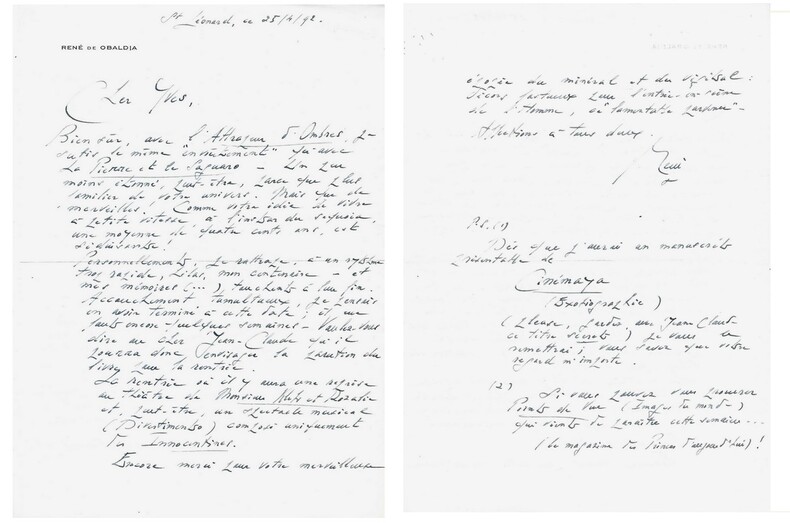 St Léonard, ce 25/4/92.
RENÉ DE OBALDIA
Cher Yves,
Bien sûr, avec l'Attrapeur d'Ombres, je
suis le même "envoûtement" qu'avec
La Pierre et le Saguaro - Un peu
moins étonné, peut-être, parce que plus
familier de votre univers. Mais que de
merveilles. Comme votre idée de vivre
à petite vitesse à l'instar du sequoia,
une moyenne de quatre cents ans, est
séduisante!
Personnellement, je rattrape, à un rythme
très rapide, hélas, mon centenaire - et
mes mémoires (...), touchent à leur fin.
Accouchement tumultueux, je pensais
en avoir terminé à cette date; il me
faut encore quelques semaines - Voulez-vous
dire au cher Jean-Claude qu'il
pourra donc envisager la parution du
livre pour la rentrée.
La rentrée où il y aura une reprise
au théâtre de Monsieur Klebs et Rozalie
et, peut-être, un spectacle musical
(Divertimento) composé uniquement
des Innocentines.
Encore merci pour votre merveilleuse
épopée du minéral et du végétal:
Décors fastueux pour l'entrée en scène
de l'Homme, ce "lamentable
Affections à tous deux.
René
P.S. (1)
Dès que j'aurai un manuscrit
présentable de
Cinémaya
(Exobiographie)
(Please, gardez avec Jean-Claude
ce titre secret) je vous le
remettrai; vous savez que votre
regard m'importe.
(2) Si vous pouvez vous procurer
Points de Vue (Images du monde)
qui vient de paraître cette semaine...
(le magazine des Princes d'aujourd'hui)!